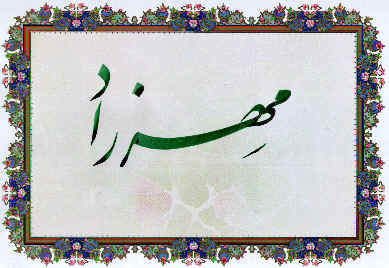 مهرزاد